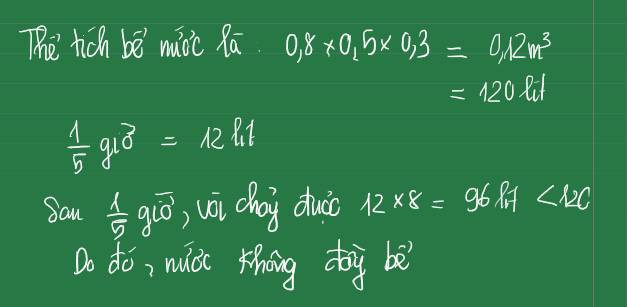 Thể tích bể nước là. 0,8 × 0,5 × 0,3 = 0,12m³
= 120 lít
1/5 giờ = 12 lít
Sau 1/5 giờ, vòi chảy được 12 × 8 = 96 lít < 120
Do đó, nước không đầy bể